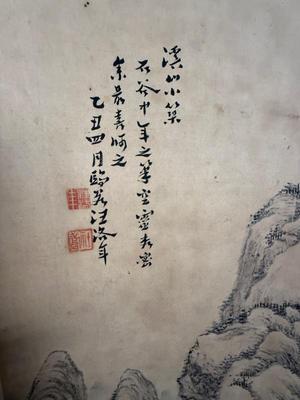 溪山小築
石谷中年之筆空靈秀密
余最喜師之
乙丑四月臨 汪洛年